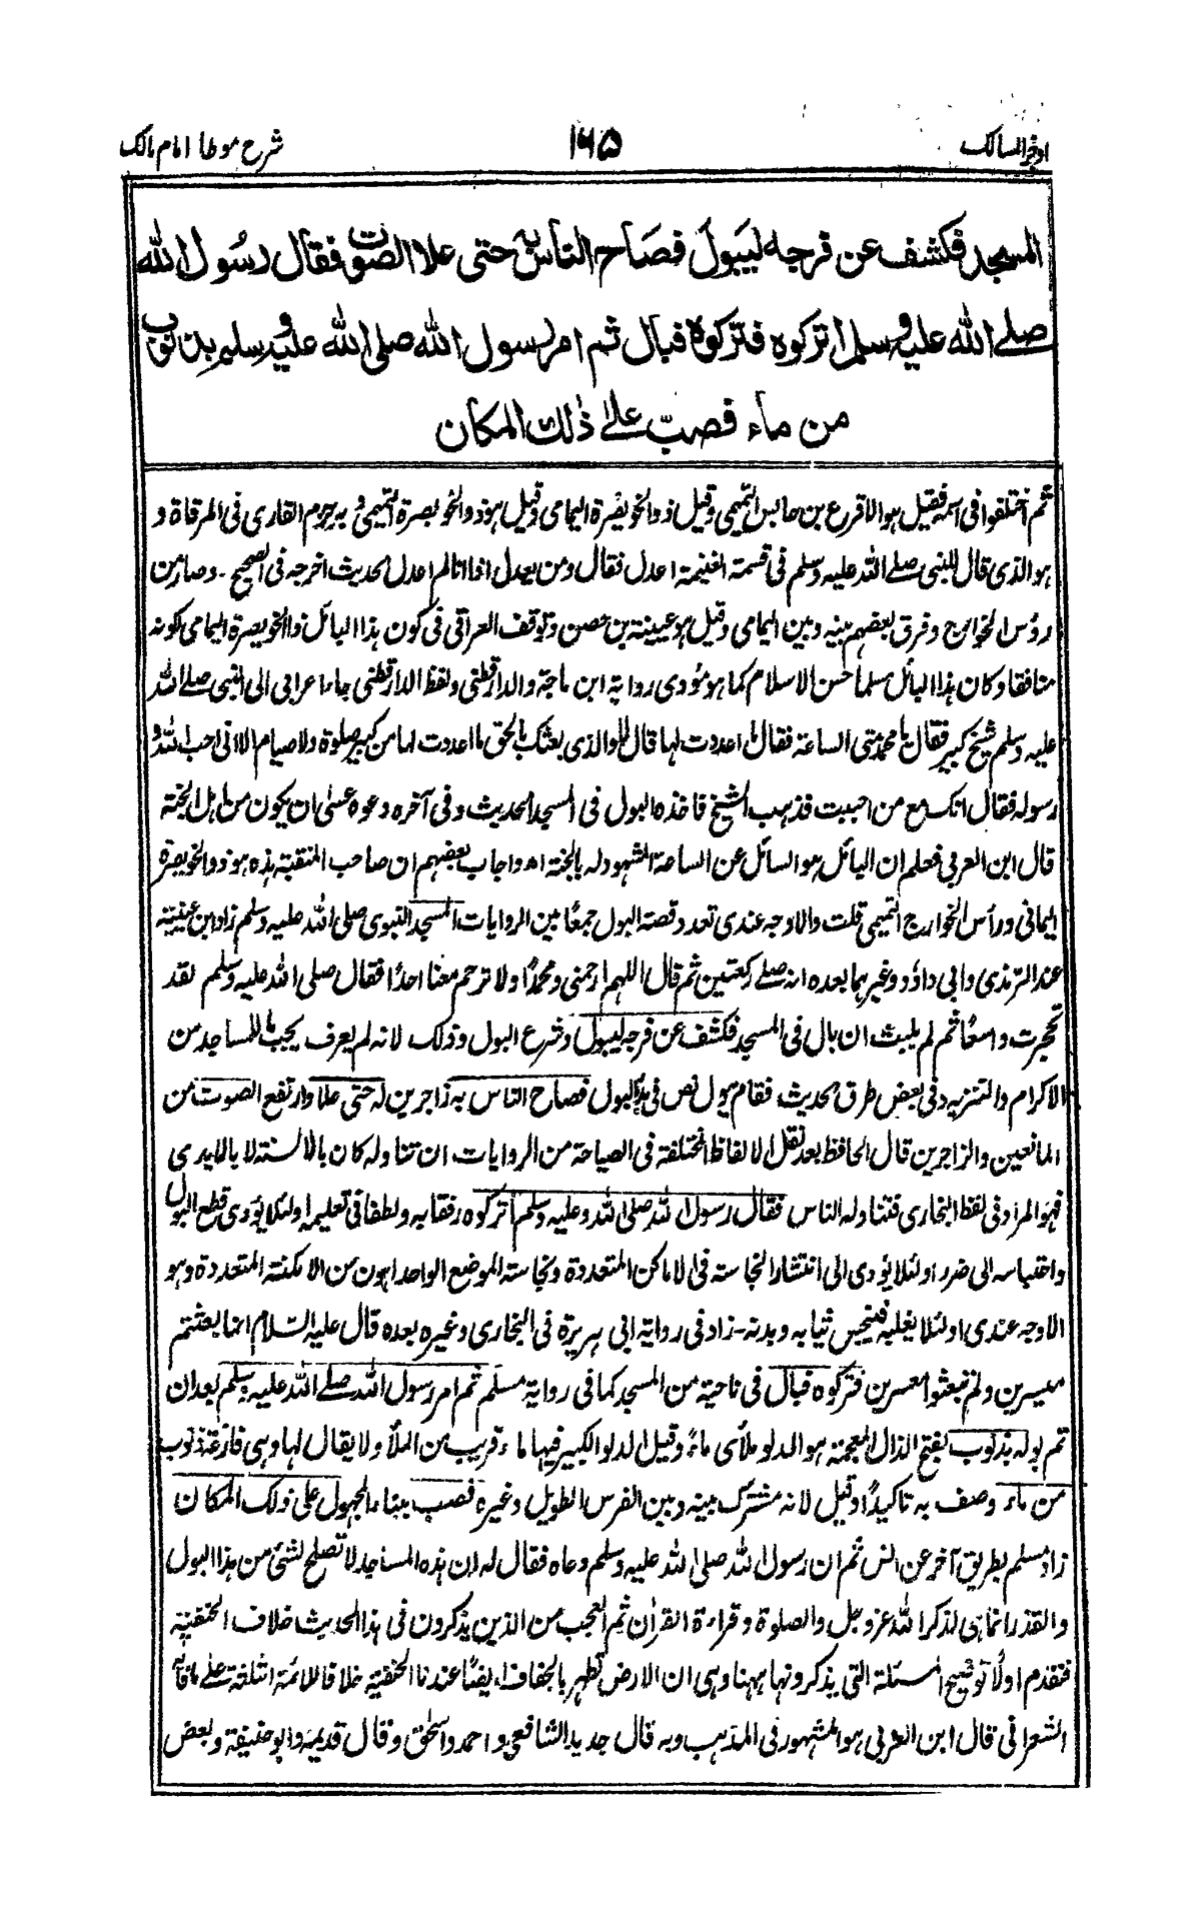 اوجز المسالك ۱۶۵ شرح موطا امام مالك
المسجد فكشف عن فرجه ليبول فصاح الناس به حتى علا الصوت فقال رسول الله
صلے الله عليه وسلم اتركوه فتركوه فبال ثم امر رسول الله صلى الله عليه وسلم بذنوب
من ماء فصب علے ذلك المكان
ثم اختلفوا فى اسمه فقيل هو الاقرع بن حابس التميمى وقيل ذو الخويصرة اليمامى وقيل هو ذو الخويصرة التميمى وبه جزم القارى فى المرقاة و
هو الذى قال للنبى صلے الله عليه وسلم فى قسمة الغنيمة اعدل فقال ومن يعدل اذا انا لم اعدل الحديث اخرجه فى الصحيح - وصار من
رؤس الخوارج وفرق بعضهم بينه وبين اليمامى وقيل هو عيينة بن حصن وتوقف العراقى فى كون هذا البائل ذوالخويصرة اليمامى لكونه
منافقا وكان هذا البائل مسلما حسن الاسلام كما هو مؤدى رواية ابن ماجة والدارقطنى ولفظ الدارقطنى جاء اعرابى الى النبى صلے الله
عليه وسلم شيخ كبير فقال يا محمد متى الساعة فقال ما اعددت لها قال لا والذى بعثك بالحق ما اعددت لها من كبير صلوة ولا صيام الا انى احب الله و
رسوله فقال انك مع من احببت فذهب الشيخ فاخذه البول فى المسجد الحديث وفى آخره دعوه عسى ان يكون من اهل الجنة
قال ابن العربى فعلم ان البائل هو السائل عن الساعة المشهود له بالجنة اه واجاب بعضهم ان صاحب المنقبة هذه هو ذو الخويصرة
اليمانى ورأس الخوارج التميمى قلت والاوجه عندى تعدد قصة البول جمعًا بين الروايات المسجد النبوى صلى الله عليه وسلم زاد ابن عيينة
عند الترمذى وابى داؤد وغيرهما بعده انه صلے ركعتين ثم قال اللهم ارحمنى ومحمدًا ولا ترحم معنا احدًا فقال صلى الله عليه وسلم لقد
تحجرت واسعًا ثم لم يلبث ان بال فى المسجد فكشف عن فرجه ليبول وشرع البول وذلك لانه لم يعرف ما يجب للمساجد من
الاكرام والتنزيه وفى بعض طرق الحديث فقام يبول نص فى بدء البول فصاح الناس به زاجرين له حتى علا وارتفع الصوت من
المانعين والزاجرين قال الحافظ بعد نقل الالفاظ المختلفة فى الصياحة من الروايات ان تناوله كان بالالسنة لا بالايدى
فهو المراد فى لفظ البخارى فتناوله الناس فقال رسول الله صلى الله عليه وسلم اتركوه رفقا به ولطفا فى تعليمه اولئلا يؤدى قطع البول
واحتباسه الى ضرر اولئلا يؤدى الى انتشار النجاسة فى الاماكن المتعددة ونجاسة الموضع الواحد اهون من الامكنة المتعددة وهو
الاوجه عندى اولئلا يغلبه فينجس ثيابه وبدنه - زاد فى رواية ابى هريرة فى البخارى وغيره بعده قال عليه السلام انما بعثتم
ميسرين ولم تبعثوا معسرين فتركوه فبال فى ناحية من المسجد كما فى رواية مسلم ثم امر رسول الله صلے الله عليه وسلم بعد ان
تم بوله بذنوب بفتح الذال المعجمة هو الدلو ملأى ماءً وقيل الدلو الكبير فيها ماء قريب من الملأ ولا يقال لها وهى فارغة ذنوب
من ماء وصف به تاكيدًا وقيل لانه مشترك بينه وبين الفرس الطويل وغيره فصب ببناء المجهول على ذلك المكان
زاد مسلم بطريق آخر عن انس ثم ان رسول الله صلى الله عليه وسلم دعاه فقال له ان هذه المساجد لا تصلح لشئ من هذا البول
والقذر انما هى لذكر الله عز وجل والصلوة وقراءة القرآن ثم العجب من الذين يذكرون فى هذا الحديث خلاف الحنفية
فنقدم اولًا توضيح المسئلة التى يذكرونها ههنا وهى ان الارض تطهر بالجفاف ايضًا عندنا الحنفية خلافا للائمة الثلثة على ما قاله
الشعرانى قال ابن العربى هو المشهور فى المذهب وبه قال جديد الشافعى واحمد واسحٰق وقال قديمه وابو حنيفة وبعض